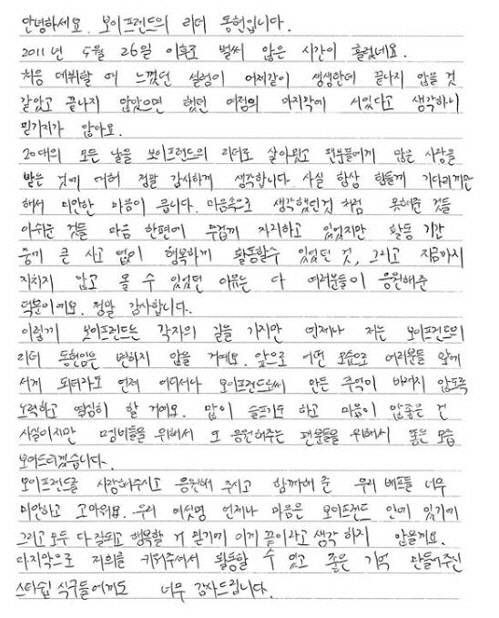 안녕하세요. 보이프렌드의 리더 동현입니다.
2011년 5월 26일 이후로 벌써 많은 시간이 흘렀네요.
처음 데뷔할 때 느꼈던 설렘이 어제같이 생생한데 끝나지 않을 것
같았고 끝나지 않았으면 했던 여정의 마지막에 서있다고 생각하니
믿기지가 않아요.
20대의 모든 날을 보이프렌드의 리더로 살아왔고 팬분들에게 많은 사랑을
받는 것에 대해 정말 감사하게 생각합니다 사실 항상 힘들게 기다리게만
해서 미안한 마음이 큽니다. 마음속으로 생각했던것 처럼 못해준 것들
아쉬운 것들 마음 한편에 무겁게 자리하고 있었지만 활동 기간
중에 큰 사고 없이 행복하게 활동할수 있었던 것, 그리고 지금까지
지치지 않고 올 수 있었던 이유는 다 여러분들이 응원해준
덕분이에요. 정말 감사합니다.
이렇게 보이프렌드는 각자의 길을 가지만 언제나 저는 보이프렌드의
리더 동현임은 변하지 않을 거예요. 앞으로 어떤 모습으로 여러분들 앞에
서게 되더라도 언제 어디서나 보이프렌드로써 만든 추억이 바래지 않도록
노력하고 열심히 할 거에요. 많이 슬프기도 하고 마음이 안좋은 건
사실이지만 멤버들을 위해서 또 응원해주는 팬분들을 위해서 좋은 모습
보여드리겠습니다.
보이프렌드를 사랑해주시고 응원해 주시고 함께해 준 우리 베프들 너무
미안하고 고마워요. 우리 여섯명 언제나 마음은 보이프렌드 안에 있기에
그리고 모두 다 잘되고 행복할 거 믿기에 이게 끝이라고 생각 하지 않을게요.
마지막으로 저희를 키워주셔서 활동할 수 있고 좋은 기억 만들어주신
스타쉽 식구들에게도 너무 감사드립니다.